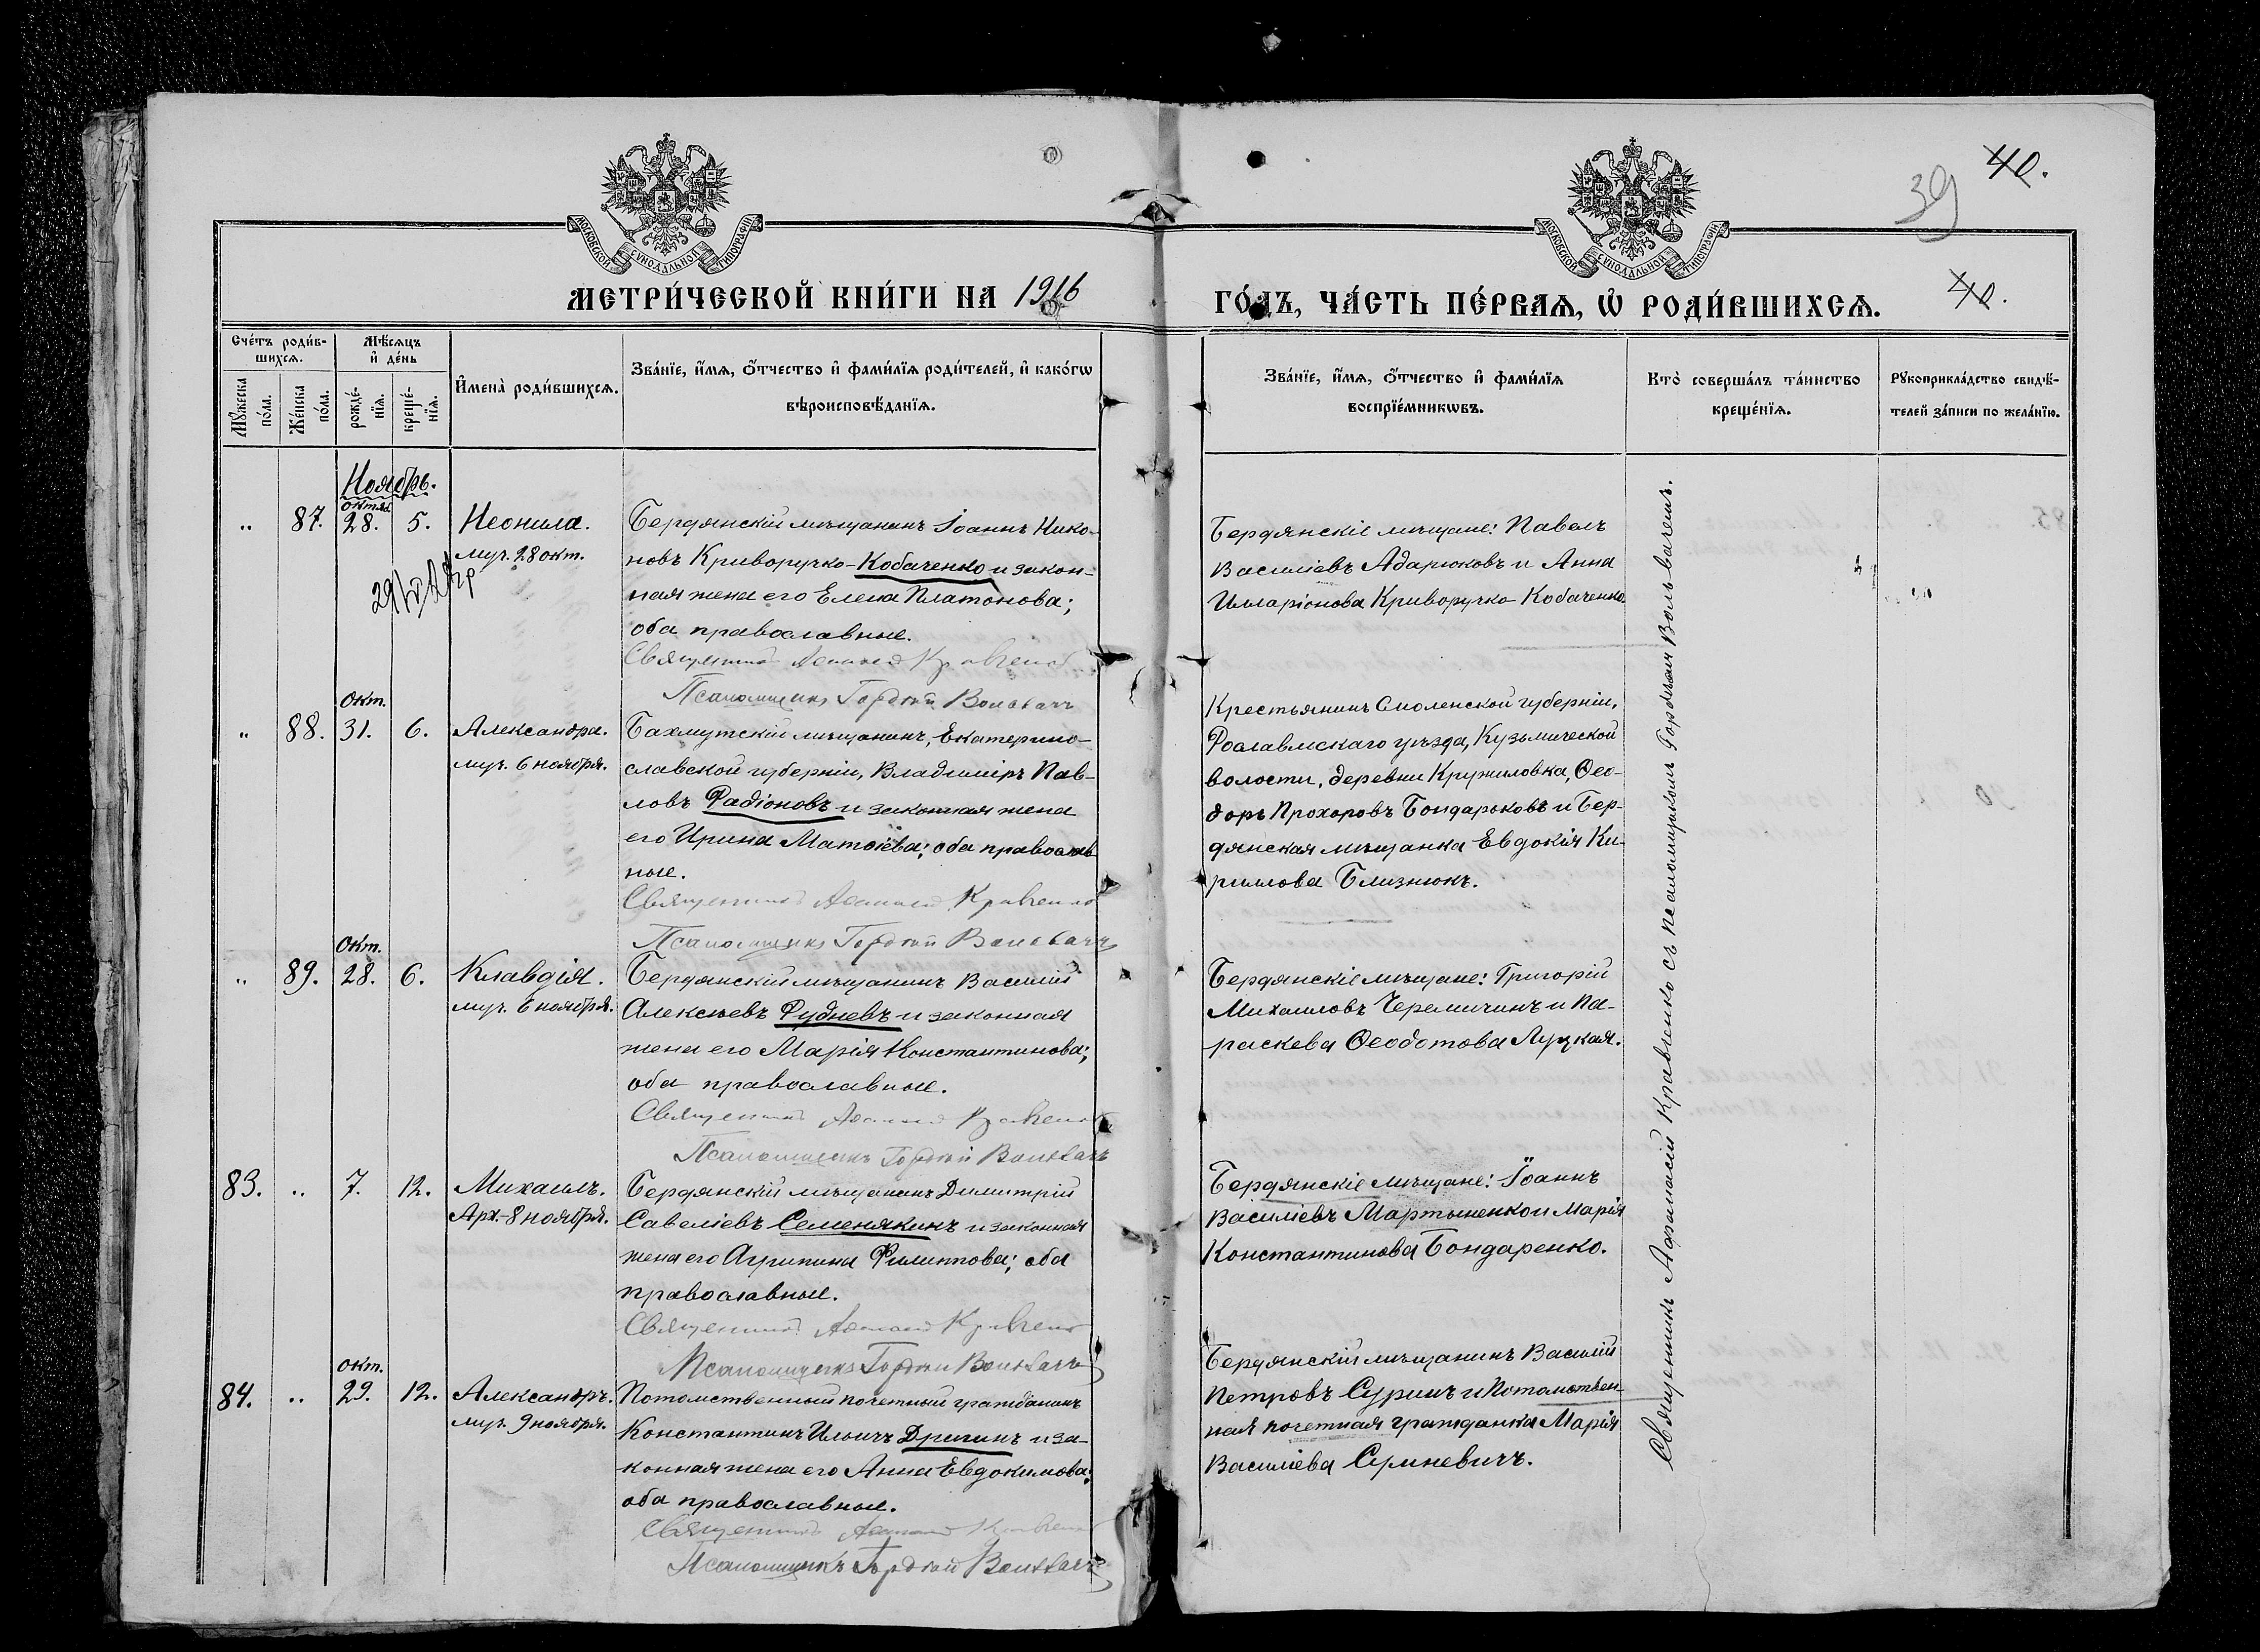 39
40.
МОСКОВСКОЙ СѴНОДАЛЬНОЙ ТИПОГРАФІИ
МОСКОВСКОЙ СѴНОДАЛЬНОЙ ТИПОГРАФІИ
МЕТРИ́ЧЕСКОЙ КНИ́ГИ НА 1916
ГО́ДЪ, ЧА́СТЬ ПЕ́РВАѦ, Ѡ҆ РОДИ́ВШИХСѦ.
40.
Сче́тъ роди́в-
шихсѧ.
Мꙋ́жеска
по́ла.
Же́нска
по́ла.
Мѣ́сѧцъ
и҆ де́нь
рожде́-
нїѧ.
креще́-
нїѧ.
И҆мена̀ роди́вшихсѧ.
Зва́нїе, и҆́мѧ, ѻ҆́тчество и҆ фами́лїѧ роди́телей, и҆ како́гѡ
вѣроисповѣ́данїѧ.
Зва́нїе, и҆́мѧ, ѻ҆́тчество и҆ фами́лїѧ
воспрїе́мникѡвъ.
Кто̀ соверша́лъ та́инство
креще́нїѧ.
Рꙋкоприкла́дство свидѣ́-
телей за́писи по жела́нїю.
Ноябрь.
октяб.
„ 87. 28. 5. Неонила.
муч. 28 окт.
Бердянскій мѣщанинъ Іоаннъ Нико-
новъ Криворучко-Кобаченко и закон-
ная жена его Елена Платонова;
оба православные.
Священникъ Афанасій Кравченко
Псаломщикъ Гордѣй Вольвачъ
Бердянскіе мѣщане: Павелъ
Василіевъ Адарюковъ и Анна
Илларіонова Криворучко Кобаченко.
окт.
„ 88. 31. 6. Александра.
муч. 6 ноября.
Бахмутскій мѣщанинъ, Екатерино-
славской губерніи, Владиміръ Пав-
ловъ Радіоновъ и законная жена
его Ирина Матѳіева; оба православ
ные.
Священникъ Афанасій Кравченко
Псаломщикъ Гордѣй Вольвачъ
Крестьянинъ Смоленской губерніи,
Рославльскаго уѣзда, Кузьмической
волости, деревни Кружиловка, Ѳео-
доръ Прохоровъ Бондарьковъ и Бер-
дянская мѣщанка Евдокія Ки-
риллова Близнюкъ.
окт.
„ 89. 28. 6. Клавдія.
муч. 6 ноября.
Бердянскій мѣщанинъ Василій
Алексѣевъ Рудневъ и законная
жена его Марія Константинова;
оба православные.
Священникъ Афанасій Кравченко
Псаломщикъ Гордѣй Вольвачъ
Бердянскіе мѣщане: Григорій
Михаиловъ Черемичинъ и Па-
раскева Ѳеодотова Луцкая.
83. „ 7. 12. Михаилъ.
Арх. 8 ноября.
Бердянскій мѣщанинъ Димитрій
Савеліевъ Семенякинъ и законная
жена его Агрипина Филиппова; оба
православные.
Священникъ Афанасій Кравченко
Псаломщикъ Гордѣй Вольвачъ
Бердянскіе мѣщане: Іоаннъ
Василіевъ Мартыненко и Марія
Константинова Бондаренко.
окт.
84. „ 29. 12. Александръ.
муч. 9 ноября.
Потомственный почетный гражданинъ
Константинъ Ильичъ Дрыгинъ и за-
конная жена его Анна Евдокимова;
оба православные.
Священникъ Афанасій Кравченко
Псаломщикъ Гордѣй Вольвачъ
Бердянскій мѣщанинъ Василій
Петровъ Суринъ и Потомствен-
ная почетная гражданка Марія
Василіева Сулиневичъ.
Священникъ Афанасій Кравченко съ псаломщикомъ Гордѣемъ Вольвачемъ.